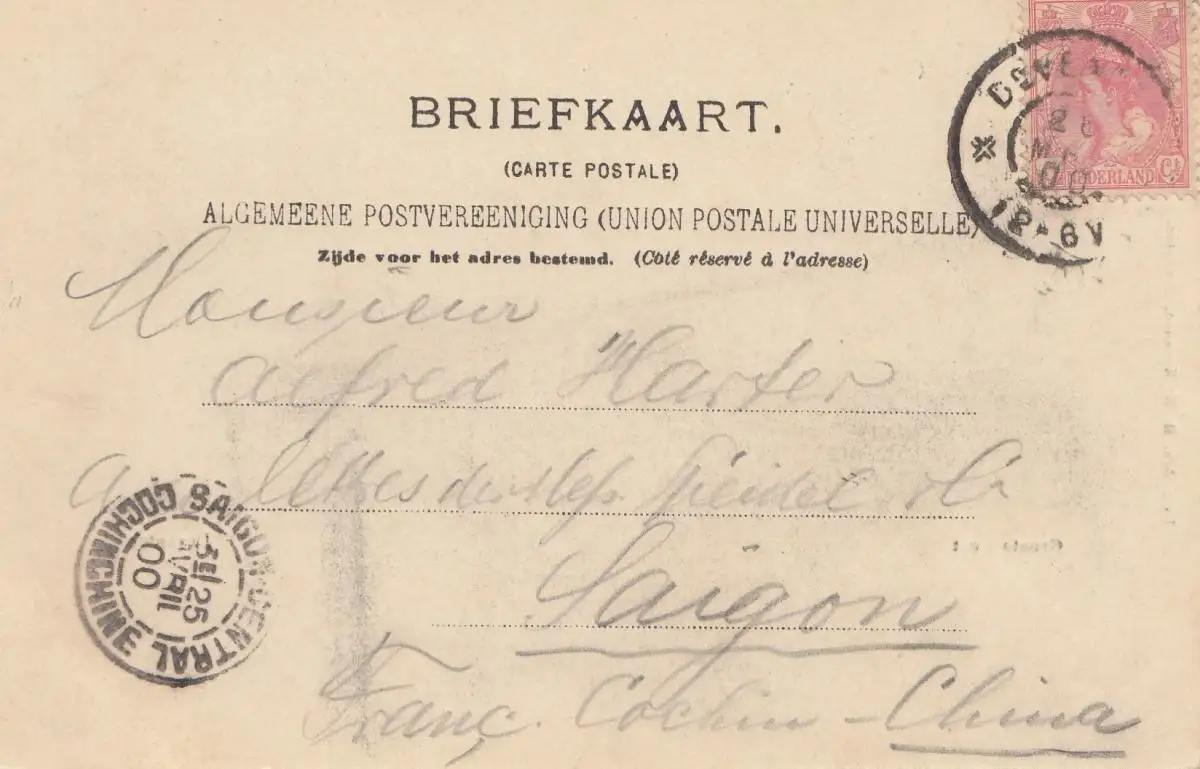 BRIEFKAART.
(CARTE POSTALE)
ALGEMEENE POSTVEREENIGING (UNION POSTALE UNIVERSELLE)
Zijde voor het adres bestemd. (Côté réservé à l'adresse)
NEDERLAND
12-6V
00
Monsieur
Alfred Harter
Saigon
Franç. Cochin-China
SAIGON-CENTRAL COCHINCHINE
25
AVRIL
00